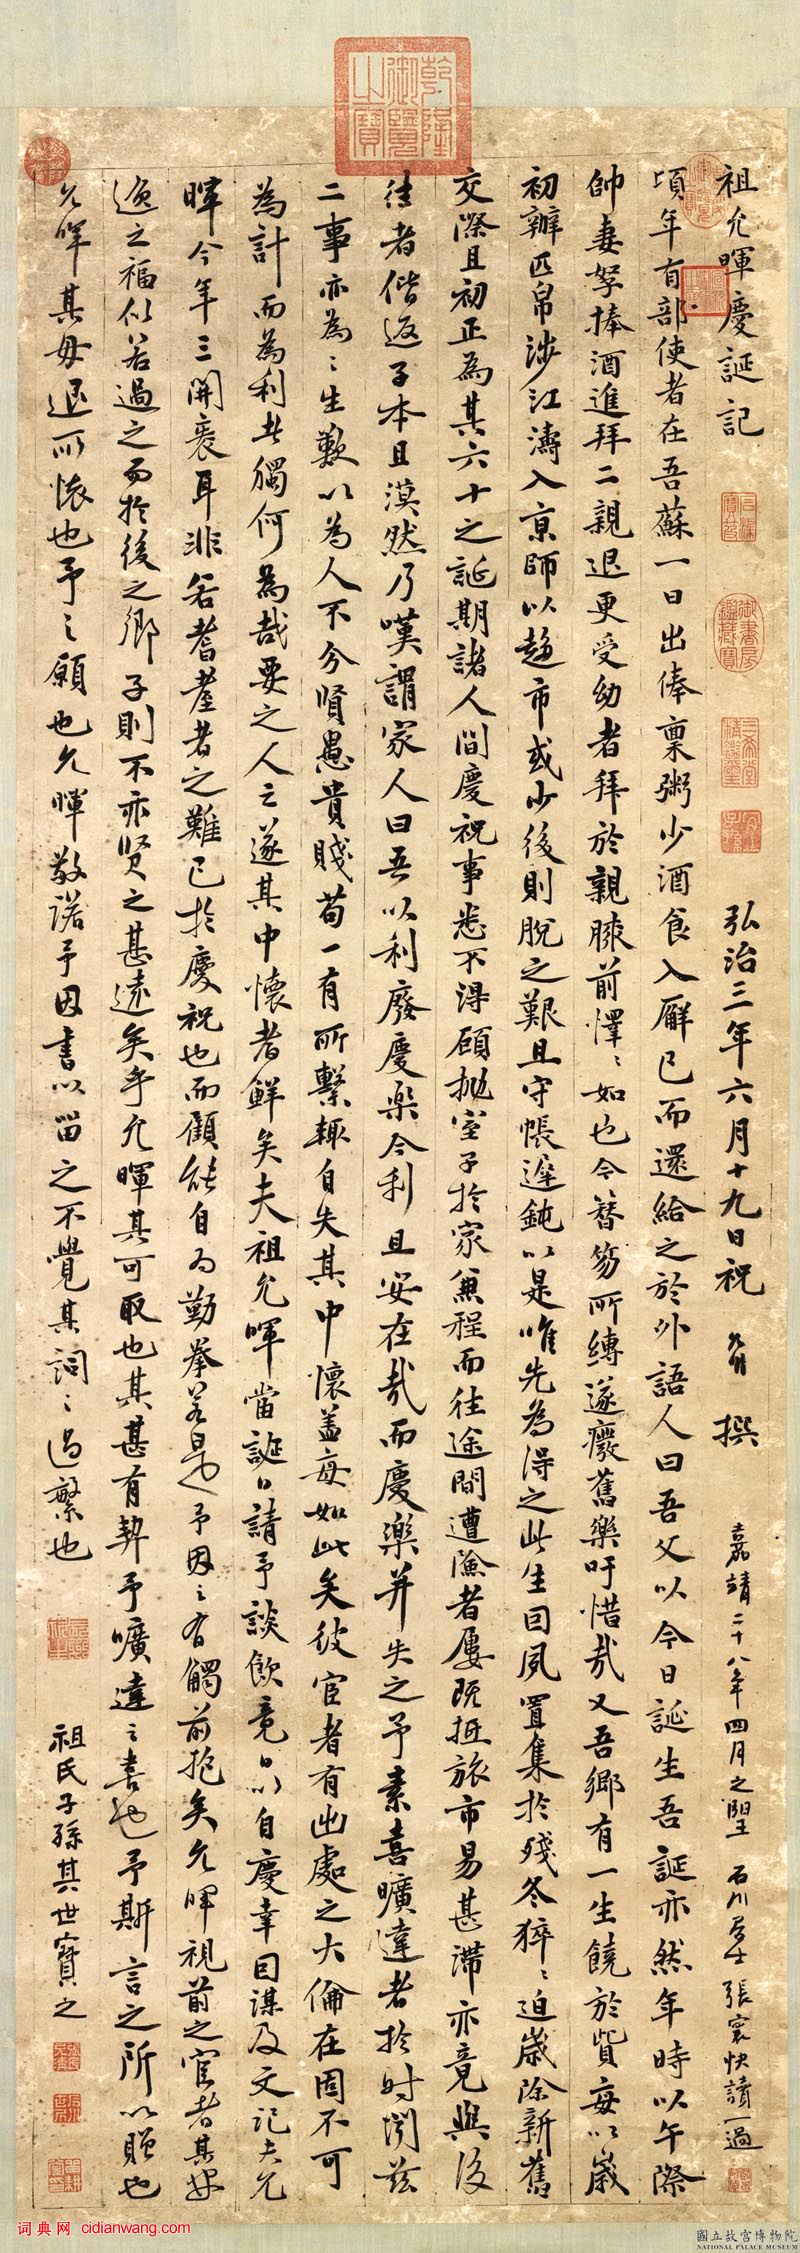 乾隆御覽之寶
祖允暉慶誕記
弘治三年六月十九日祝允明撰
嘉靖二十八年四月之望 石川居士張寰快讀一過
頃年有部使者在吾蘇一日出俸稟粥少酒食入廨已而還給之於外語人曰吾父以今日誕生吾誕亦然年時以午際
帥妻孥捧酒進拜二親退更受幼者拜於親膝前懌〻如也今簪笏所縛遂癈舊樂吁惜哉又吾鄉有一生饒於貲每以歲
初辦匹帛涉江濤入京師以趨市或少後則脫之艱且守帳遲鈍以是唯先為得之此生因夙置集於殘冬猝〻迫歲除新舊
交際且初正為其六十之誕期諸人間慶祝事悉不得顧拋室子於家兼程而往途間遭險者屢既抵旅市易甚滯亦竟與後
往者偕返子本且漠然乃嘆謂家人曰吾以利廢慶樂今利且安在哉而慶樂并失之予素喜曠達者於時閔茲
二事亦為〻生歎以為人不分賢愚貴賤苟一有所繫輒自失其中懷蓋每如此矣彼宦者有出處之大倫在固不可
為計而為利者獨何為哉要之人之遂其中懷者鮮矣夫祖允暉當誕日請予談飲竟日以自慶幸因謀及文記夫允
暉今年三開袠耳非若耆耋者之難已於慶祝也而顧能自為勤拳若是予因之有觸前抱矣允暉視前之宦者其安
逸之福似若過之而於後之鄉子則不亦賢之甚遠矣乎允暉其可取也其甚有契予曠達之喜也予斯言之所以贈也
允暉其毋退所懷也予之願也允暉敬諾予因書以留之不覺其詞〻過繁也
祖氏子孫其世寶之
御書房鑑藏寶
三希堂精鑑璽
宜子孫
石渠寶笈
词典网 cidianwang.com
國立故宮博物院
NATIONAL PALACE MUSEUM